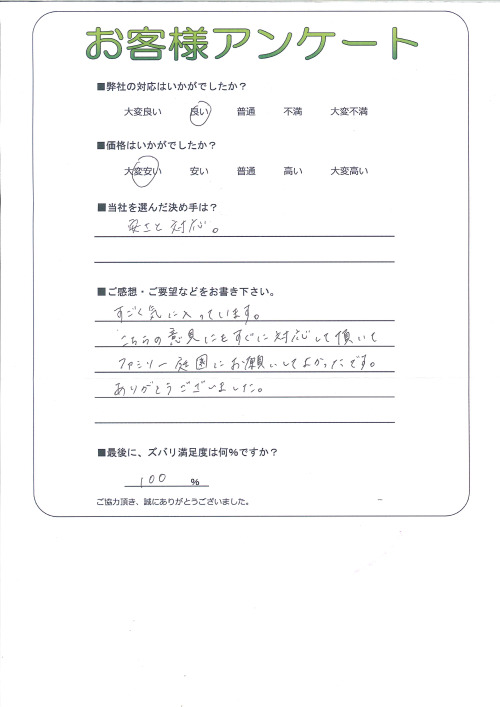 お客様アンケート
■弊社の対応はいかがでしたか？
大変良い 良い 普通 不満 大変不満
■価格はいかがでしたか？
大変安い 安い 普通 高い 大変高い
■当社を選んだ決め手は？
安さと対応。
■ご感想・ご要望などをお書き下さい。
すごく気に入っています。
こちらの意見にもすぐに対応して頂いて
ファミリー庭園にお願いしてよかったです。
ありがとうございました。
■最後に、ズバリ満足度は何％ですか？
100 ％
ご協力頂き、誠にありがとうございました。